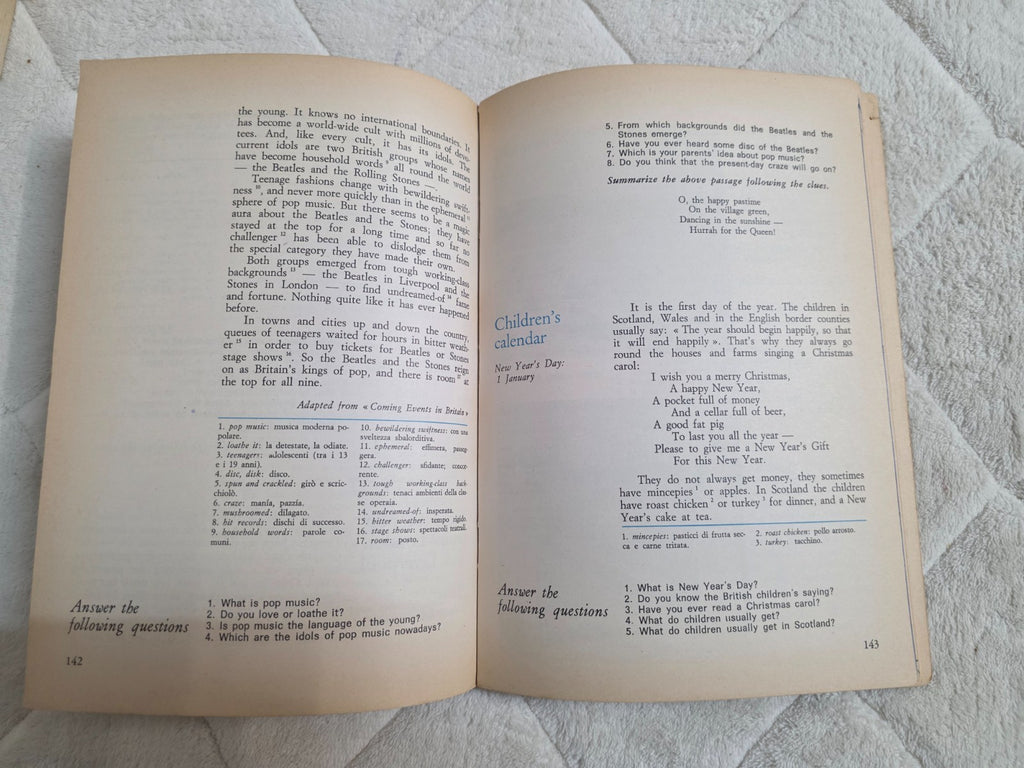 the young. It knows no international boundaries. It
has become a world-wide cult with millions of devo-
tees. And, like every cult, it has its idols. The
current idols are two British groups whose names
have become household words 9 all round the world
— the Beatles and the Rolling Stones —.
Teenage fashions change with bewildering swift-
ness 10, and never more quickly than in the ephemeral 11
sphere of pop music. But there seems to be a magic
aura about the Beatles and the Stones; they have
stayed at the top for a long time and so far no
challenger 12 has been able to dislodge them from
the special category they have made their own.
Both groups emerged from tough working-class
backgrounds 13 — the Beatles in Liverpool and the
Stones in London — to find undreamed-of 14 fame
and fortune. Nothing quite like it has ever happened
before.
In towns and cities up and down the country,
queues of teenagers waited for hours in bitter weath-
er 15 in order to buy tickets for Beatles or Stones
stage shows 16. So the Beatles and the Stones reign
on as Britain's kings of pop, and there is room 17 at
the top for all nine.
Adapted from « Coming Events in Britain »
1. pop music: musica moderna po-
polare.
2. loathe it: la detestate, la odiate.
3. teenagers: adolescenti (tra i 13
e i 19 anni).
4. disc, disk: disco.
5. spun and crackled: girò e scric-
chiolò.
6. craze: manía, pazzia.
7. mushroomed: dilagato.
8. hit records: dischi di successo.
9. household words: parole co-
muni.
10. bewildering swiftness: con una
sveltezza sbalorditiva.
11. ephemeral: effimera, passeg-
gera.
12. challenger: sfidante; concor-
rente.
13. tough working-class back-
grounds: tenaci ambienti della clas-
se operaia.
14. undreamed-of: insperata.
15. bitter weather: tempo rigido.
16. stage shows: spettacoli teatrali.
17. room: posto.
Answer the
following questions
1. What is pop music?
2. Do you love or loathe it?
3. Is pop music the language of the young?
4. Which are the idols of pop music nowadays?
142
5. From which backgrounds did the Beatles and the
Stones emerge?
6. Have you ever heard some disc of the Beatles?
7. Which is your parents' idea about pop music?
8. Do you think that the present-day craze will go on?
Summarize the above passage following the clues.
O, the happy pastime
On the village green,
Dancing in the sunshine —
Hurrah for the Queen!
Children's
calendar
New Year's Day:
1 January
It is the first day of the year. The children in
Scotland, Wales and in the English border counties
usually say: « The year should begin happily, so that
it will end happily ». That's why they always go
round the houses and farms singing a Christmas
carol:
I wish you a merry Christmas,
A happy New Year,
A pocket full of money
And a cellar full of beer,
A good fat pig
To last you all the year —
Please to give me a New Year's Gift
For this New Year.
They do not always get money, they sometimes
have mincepies 1 or apples. In Scotland the children
have roast chicken 2 or turkey 3 for dinner, and a New
Year's cake at tea.
1. mincepies: pasticci di frutta sec-
ca e carne tritata.
2. roast chicken: pollo arrosto.
3. turkey: tacchino.
Answer the
following questions
1. What is New Year's Day?
2. Do you know the British children's saying?
3. Have you ever read a Christmas carol?
4. What do children usually get?
5. What do children usually get in Scotland?
143